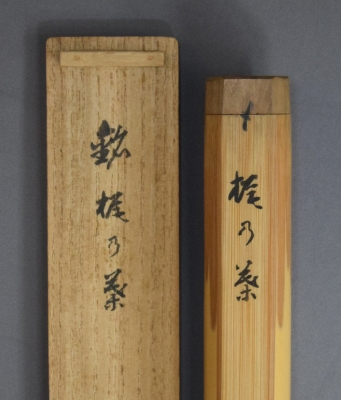 銘 梶乃葉
〆 梶乃葉